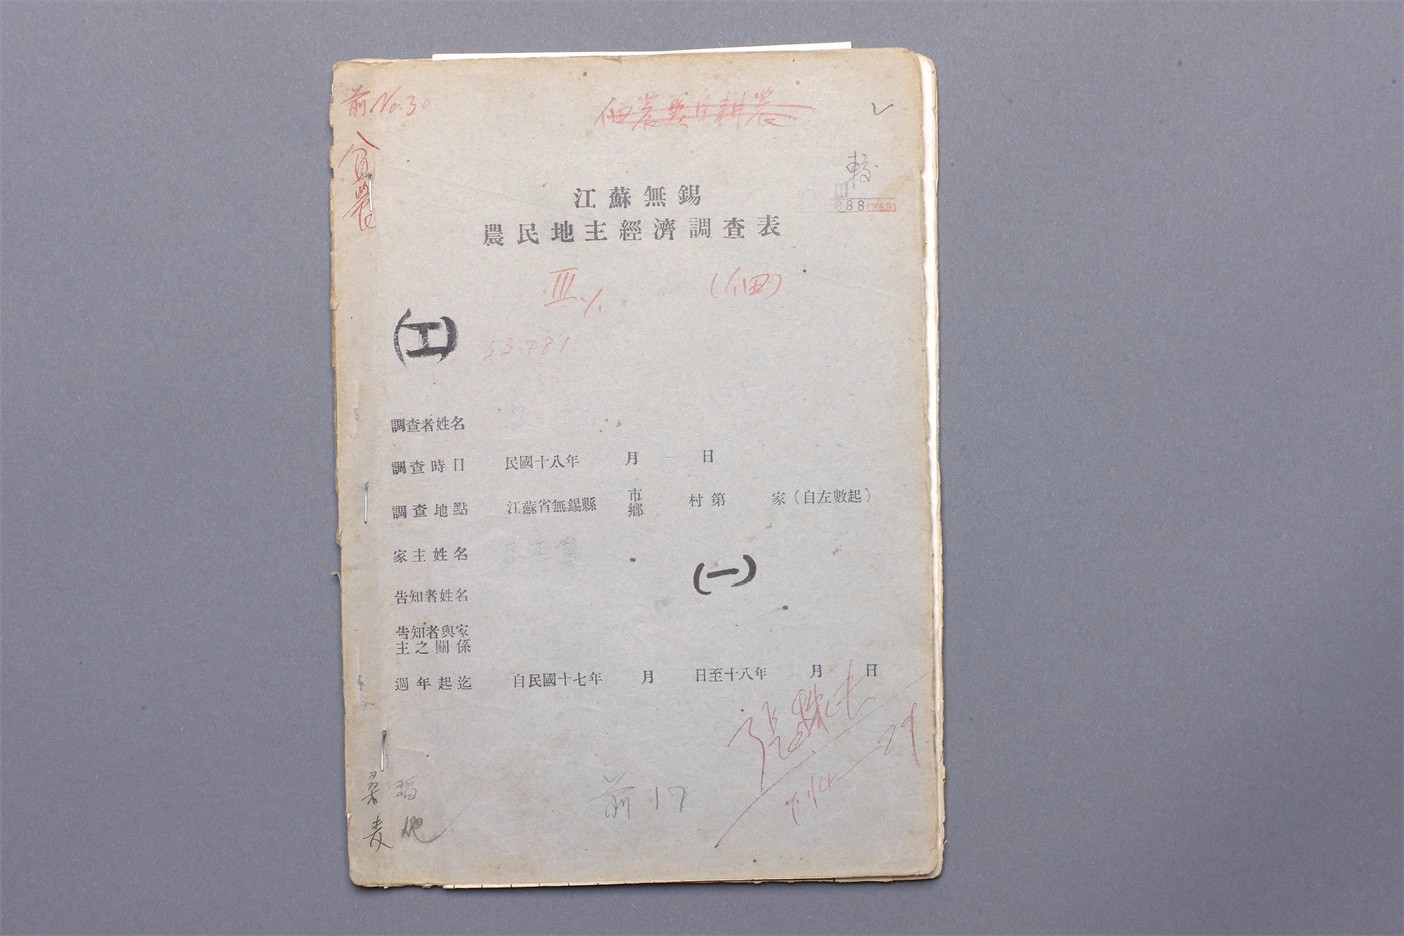 前No.30
貧農
佃農兼自耕農
較
888(759)
江蘇無錫
農民地主經濟調查表
III.1.
(佃)
(工)
53-781
調查者姓名
調查時日 民國十八年 月 日
調查地點 江蘇省無錫縣 市鄉 村第 家(自左數起)
家主姓名
(一)
告知者姓名
告知者與家
主之關係
週年起迄 自民國十七年 月 日至十八年 月 日
桑 稻
麥 地
前17
29